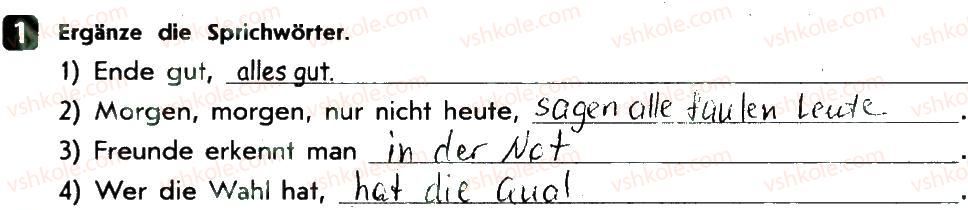 1 Ergänze die Sprichwörter.
1) Ende gut, alles gut.
2) Morgen, morgen, nur nicht heute, sagen alle faulen Leute.
3) Freunde erkennt man in der Not.
4) Wer die Wahl hat, hat die Qual.
vshkole.com vshkole.com vshkole.com vshkole.com